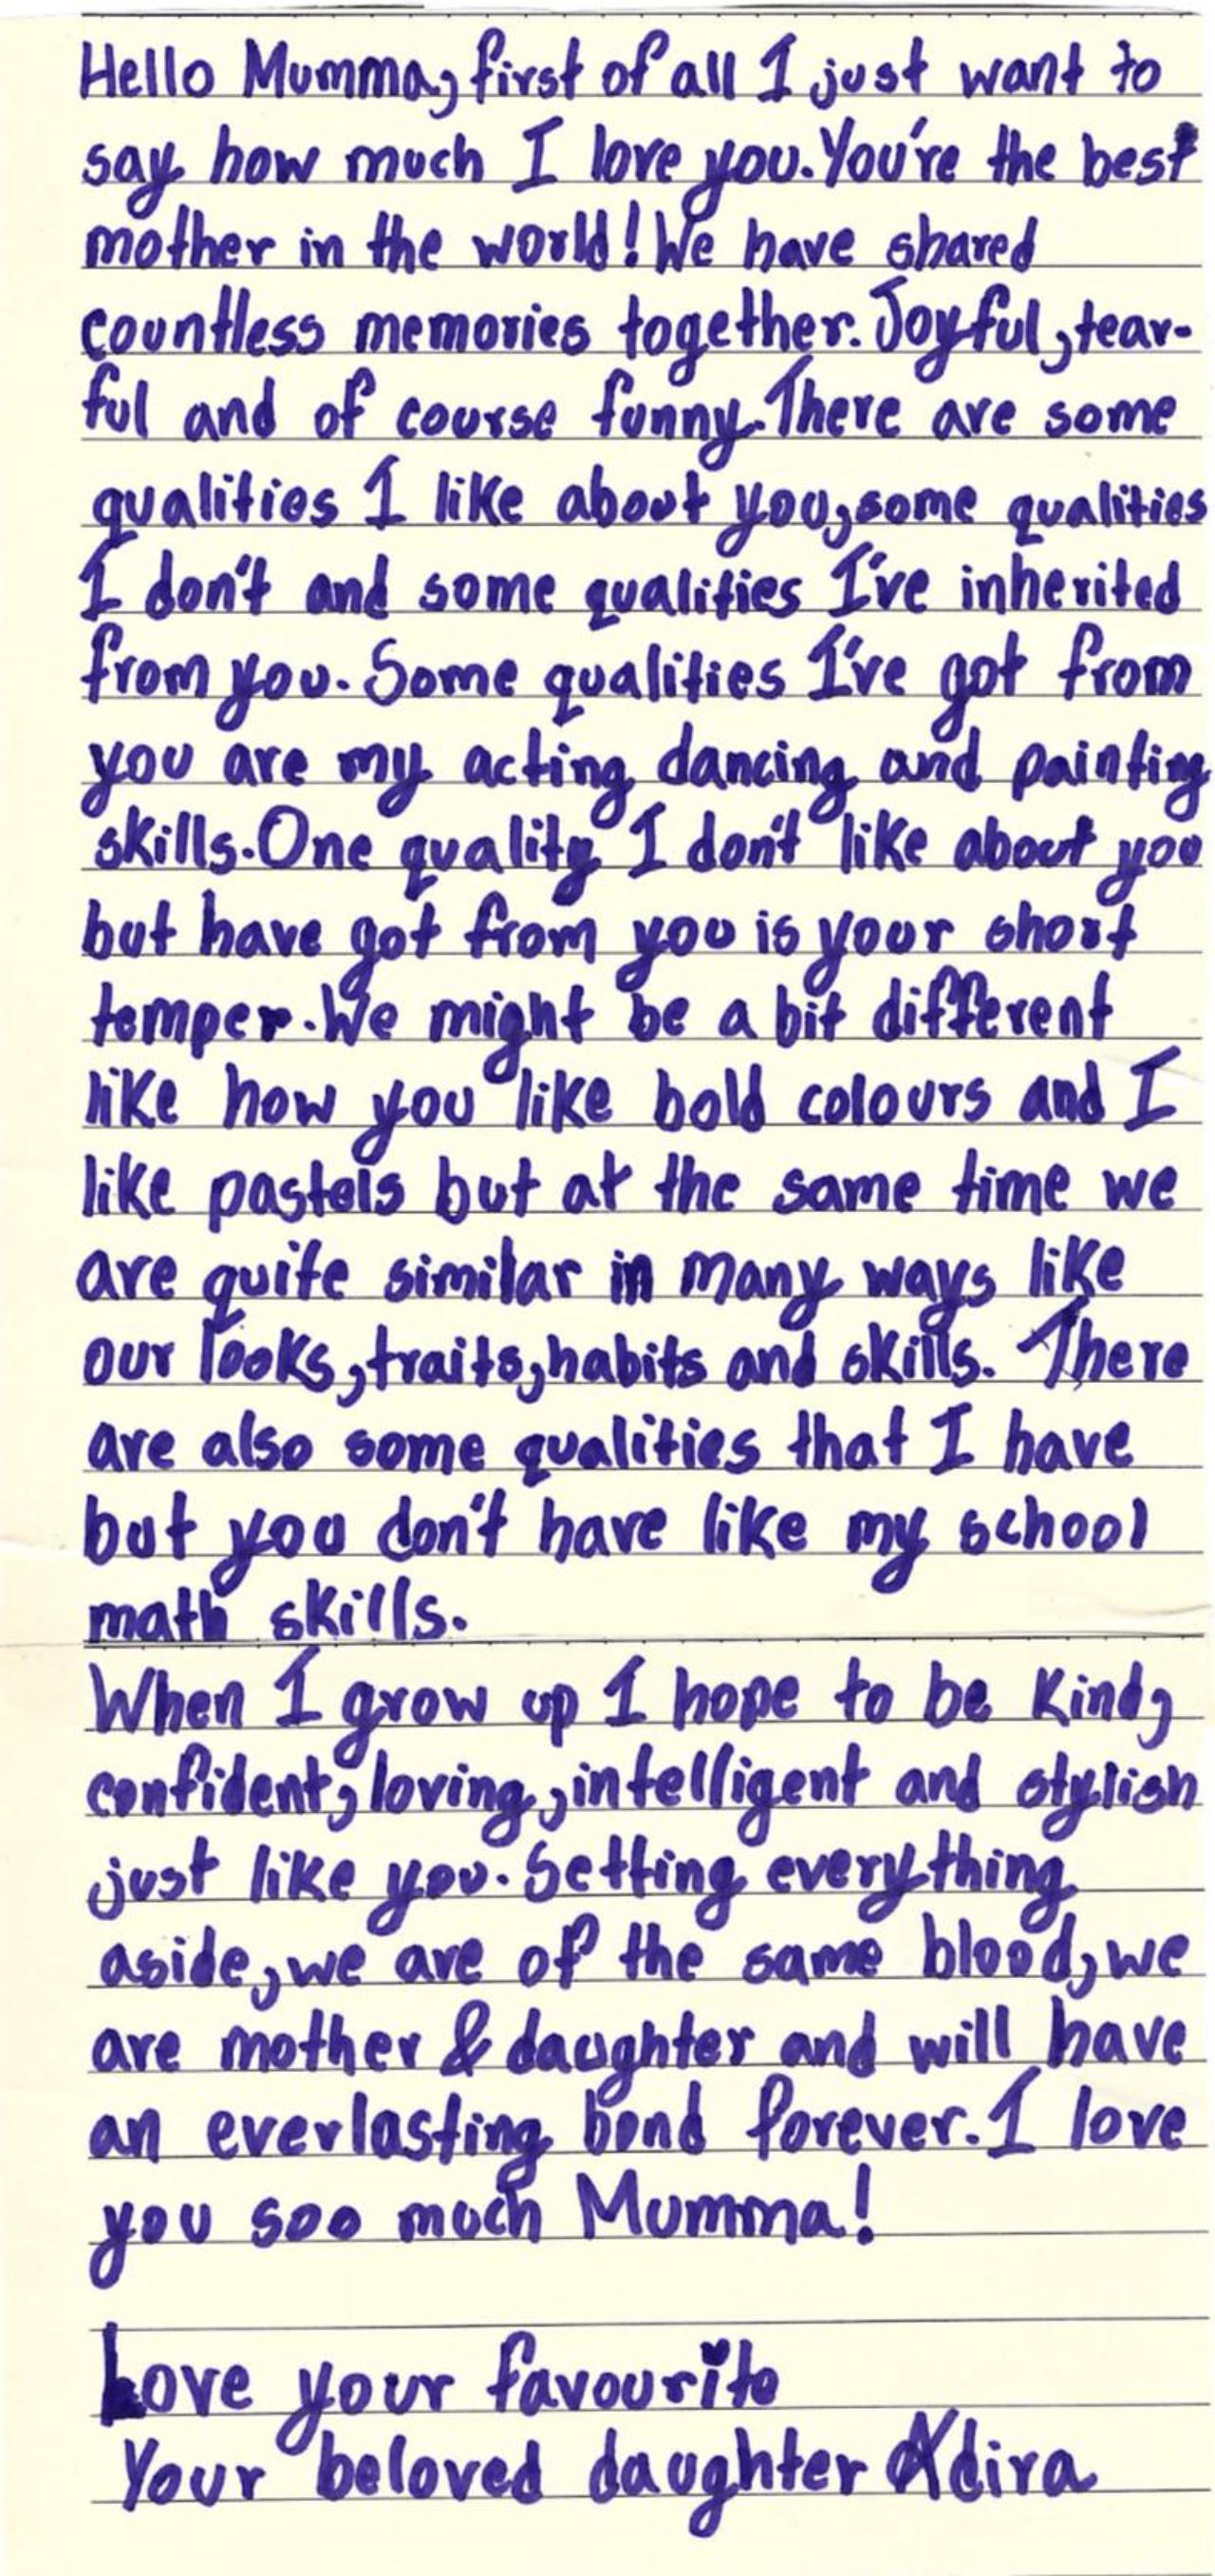 Hello Mumma, first of all I just want to
say how much I love you. You're the best
mother in the world! We have shared
countless memories together. Joyful, tear-
ful and of course funny. There are some
qualities I like about you, some qualities
I don't and some qualities I've inherited
from you. Some qualities I've got from
you are my acting dancing and painting
skills. One quality I don't like about you
but have got from you is your short
temper. We might be a bit different
like how you like bold colours and I
like pastels but at the same time we
are quite similar in many ways like
our looks, traits, habits and skills. There
are also some qualities that I have
but you don't have like my school
math skills.
When I grow up I hope to be kind,
confident, loving, intelligent and stylish
just like you. Setting everything
aside, we are of the same blood, we
are mother & daughter and will have
an everlasting bond forever. I love
you soo much Mumma!
Love your favourite
Your beloved daughter Adira